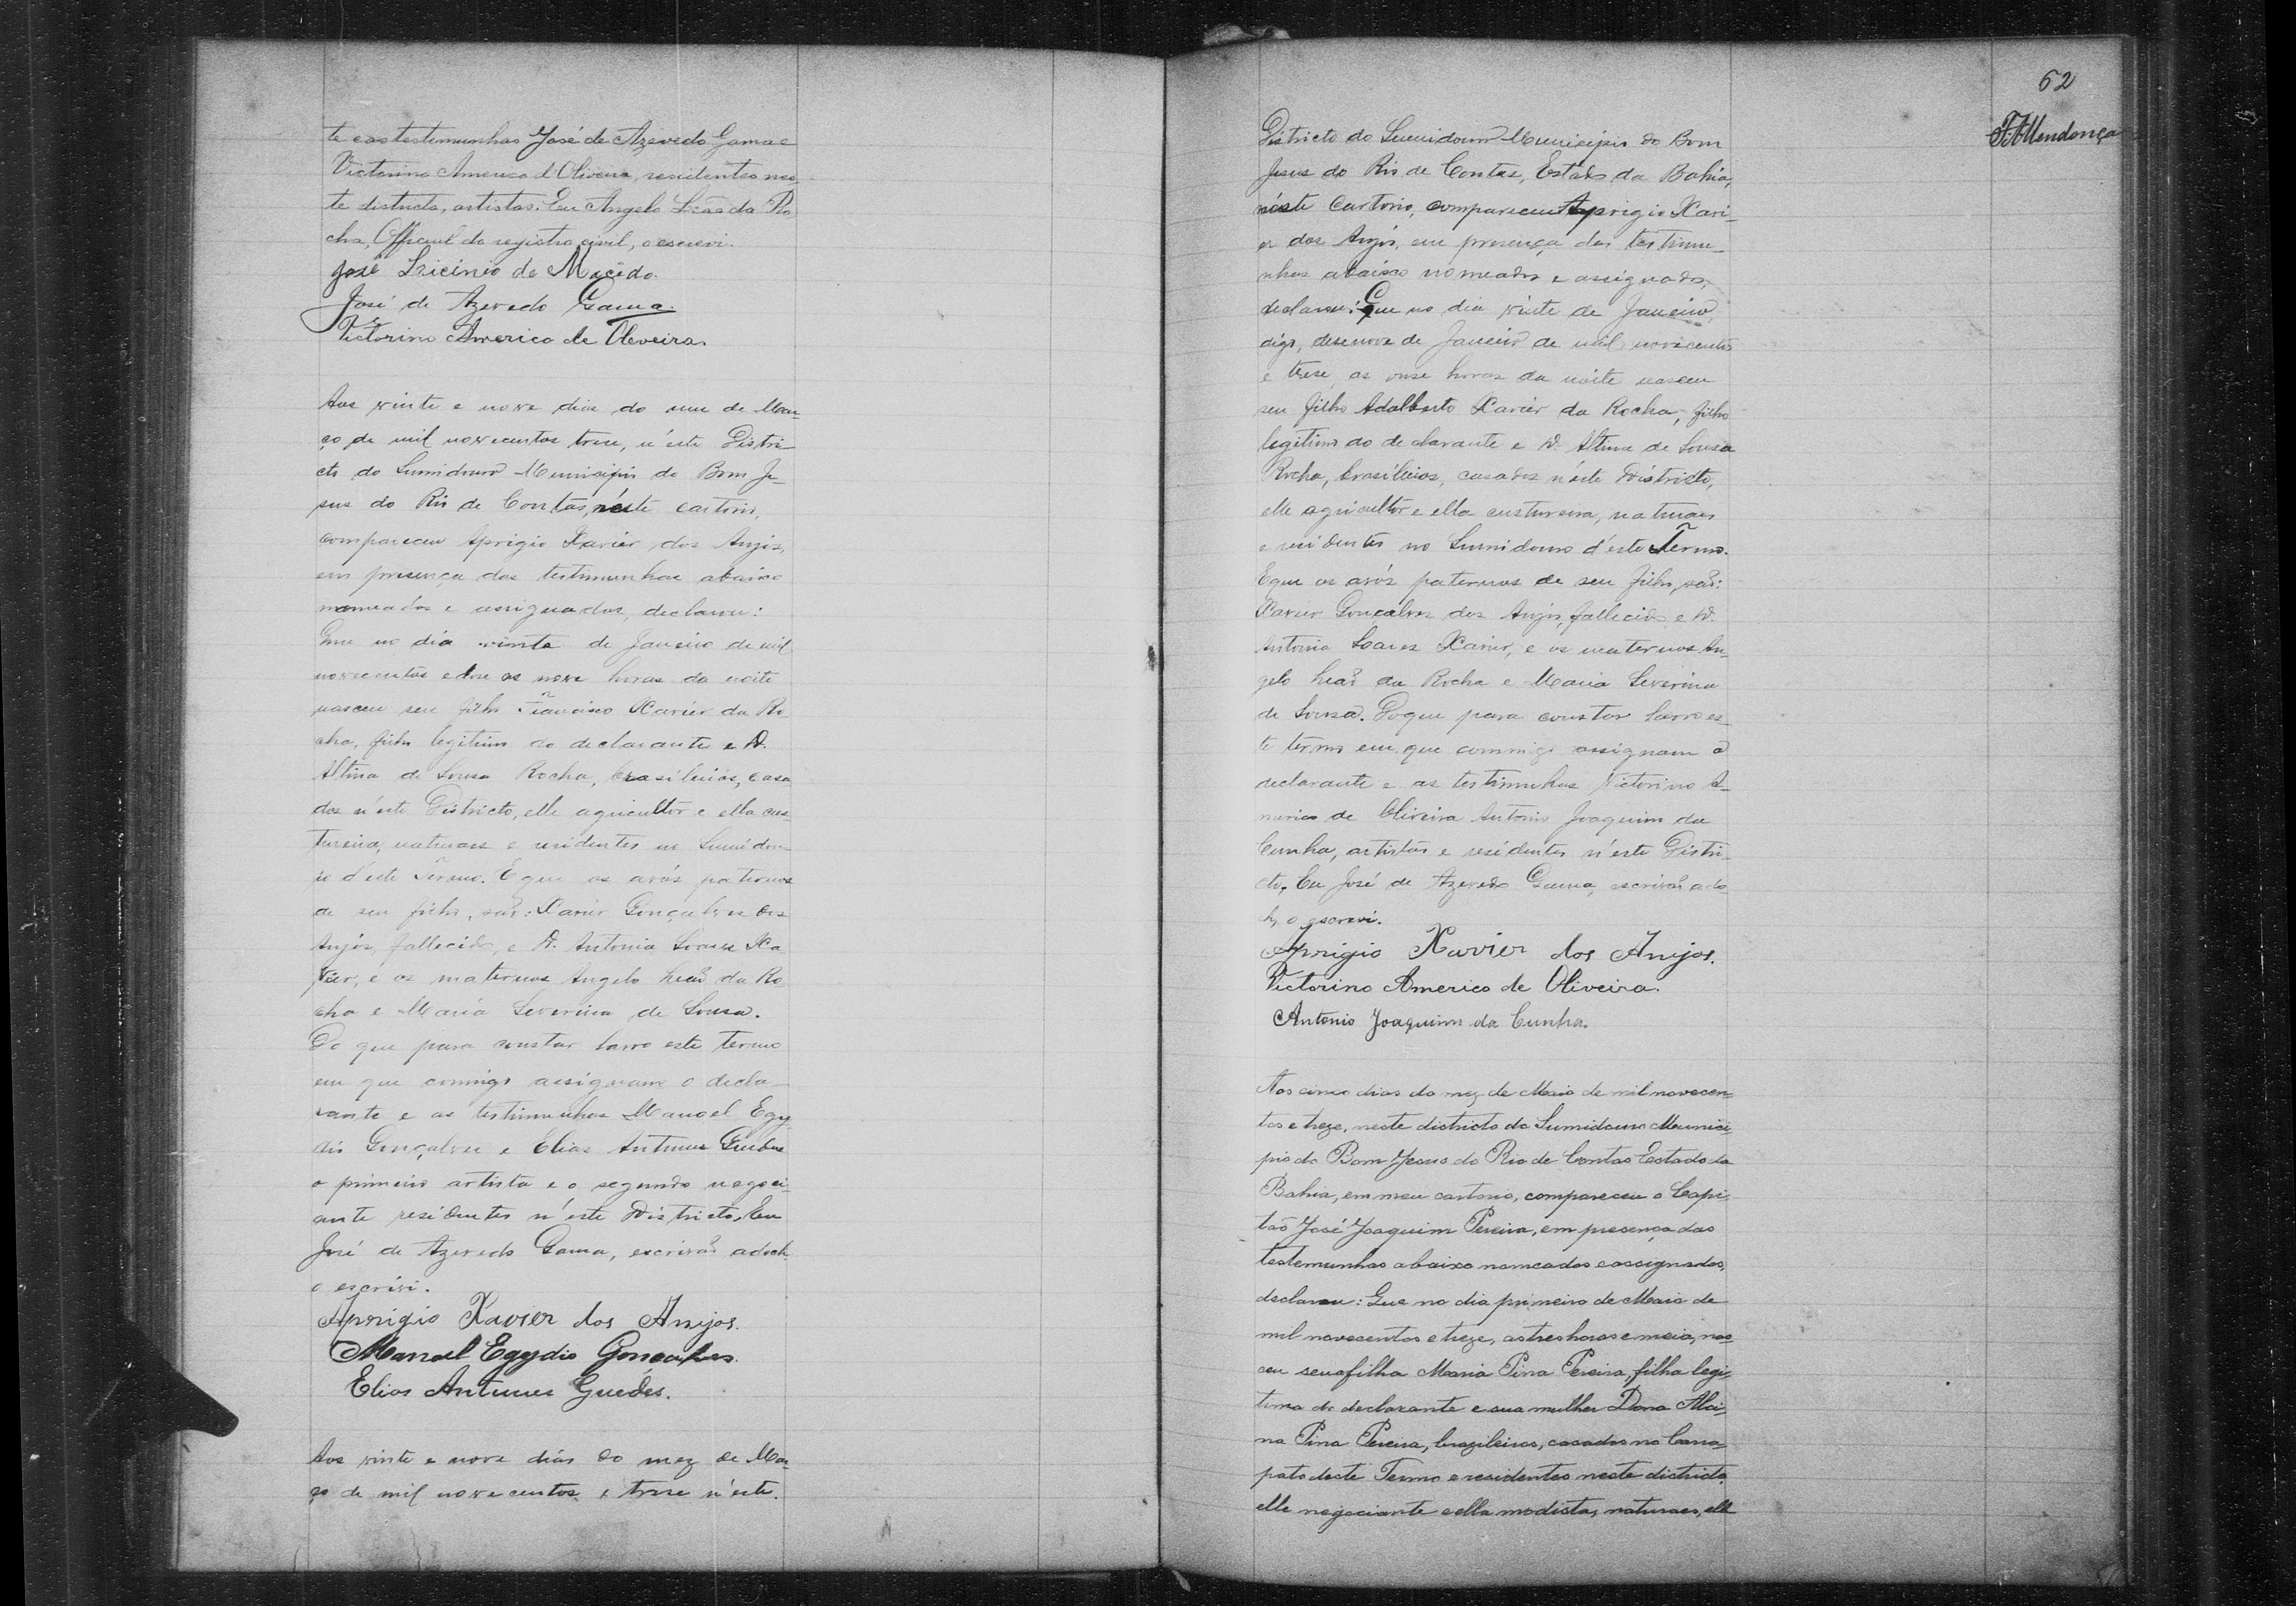 te e as testemunhas José de Azevedo Gama e
Victorino Americo d'Oliveira, residentes nes-
te districto, artistas. Eu Angelo Leão da Ro-
cha, Official do registro civil, o escrevi.
José Licinio de Macêdo.
José de Azevedo Gama.
Victorino Americo de Oleveira.
Aos vinte e nove dias do mez de Mar-
ço de mil novecentos trese, n'este Distri-
cto do Sumidouro Municipio do Bom Je-
sus do Rio de Contas, néste cartorio,
compareceu Aprigio Xavier dos Anjos,
em presença das testimunhas abaixo
nomeados e assignados, declarou:
Que no dia vinte de Janeiro de mil
novecentos e trese as nove horas da noite
nasceu seu filho Francisco Xavier da Ro-
cha, filho legitimo do declarante e D.
Altina de Sousa Rocha, brasileiros, casa
dos n'este Districto, elle agricultor e ella cus-
tureira, naturaes e residentes no Sumidou-
ro d'este Termo. E que os avós paternos
de seu filho, são: Xavier Gonçalves dos
Anjos, fallecido, e D. Antonia Soares Xa
vier, e os maternos Angelo Leão da Ro
cha e Maria Severina de Sousa.
Do que para constar lavro este termo
em que commigo assignam o decla-
rante e as testimunhas Manoel Egy
dio Gonçalves e Elias Antunes Guedes
o primeiro artista e o segundo negoci-
ante residentes n'este Districto, Eu
José de Azevedo Gama, escrivão adoch
o escrivi.
Aprigio Xavier dos Anjos.
Manoel Egydio Goncalves.
Elias Antunes Guedes.
Aos vinte e nove dias do mez de Mar-
ço de mil novecentos e trese n'este.
62
F. A. Mendonça
Districto do Sumidouro Municipio do Bom
Jesus do Rio de Contas, Estado da Bahia,
néste Cartorio, compareceu Aprigio Xavi-
er dos Anjos, em presença das testimu-
nhas abaixo nomeados e assignados,
declarou: Que no dia vinte de Janeiro,
digo, desenove de Janeiro de mil novecentos
e trese as onse horas da noite nasceu
seu filho Adalberto Xavier da Rocha, filho
legitimo do declarante e D. Altina de Sousa
Rocha, brasileiros, casados n'éste Districto,
elle agricultor e ella custureira, naturaes
e residentes no Sumidouro d'este Termo.
E que os avós paternos de seu filho, são:
Xavier Gonçalves dos Anjos, fallecido e D.
Antonia Soares Xavier, e os maternos An-
gelo Leão da Rocha e Maria Severina
de Sousa. Do que para constar lavro es-
te termo em que commigo assignam o
declarante e as testimunhas Victorino A-
merico de Oliveira Antonio Joaquim da
Cunha, artistas e residentes n'este Distri-
cto. Eu José de Azevedo Gama, escrivão ado
ch, o escrevi.
Aprigio Xavier dos Anjos.
Victorino Americo de Oliveira.
Antonio Joaquim da Cunha.
Aos cinco dias do mez de Maio de mil novecen-
tos e treze, neste districto do Sumidouro Munici-
pio do Bom Jesus do Rio de Contas Estado da
Bahia, em meu cartorio, compareceu o Capi-
tão José Joaquim Pereira, em presença das
testemunhas abaixo nomeadas e assignadas,
declarou: Que no dia primeiro de Maio de
mil novecentos e treze, as tres horas e meia, nas-
ceu sua filha Maria Pina Pereira, filha legi-
tima do declarante e sua mulher Dona Alci-
na Pina Pereira, brazileiros, casados no Carra-
pato deste Termo e residentes neste districto
elle negociante e ella modista, naturaes, elle